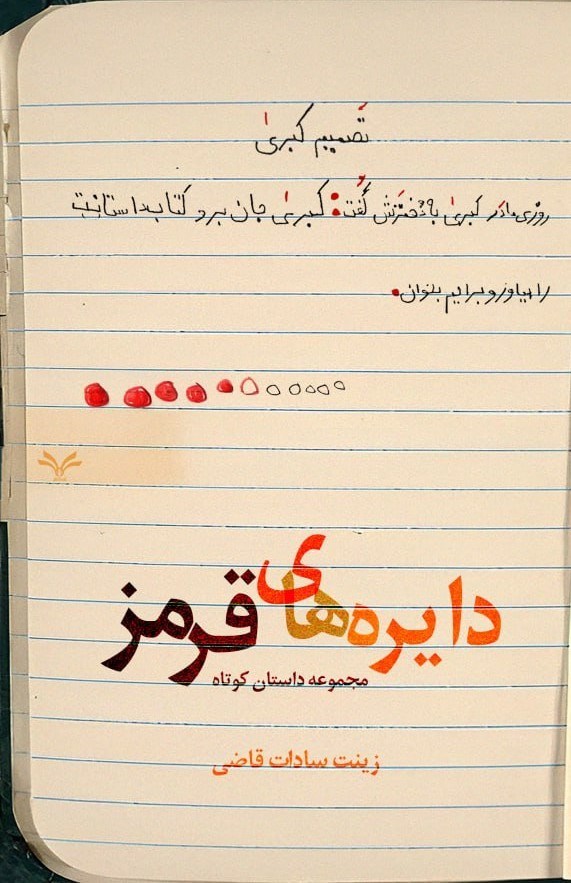 تصمیم کبریٰ
روزی مادر کبریٰ به دخترش گُفت: کبریٰ جان برو کتاب داستانت
را بیاوز و برایم بخوان.
دایره‌های قرمز
مجموعه داستان کوتاه
زینت سادات قاضی